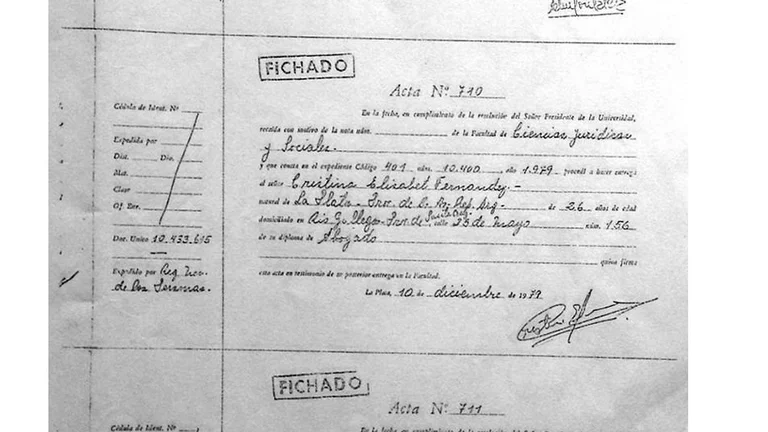 FICHADO
Acta Nº 710
En la fecha, en cumplimiento de la resolución del Señor Presidente de la Universidad,
recaída con motivo de la nota núm. de la Facultad de Ciencias Jurídicas
y Sociales.
y que consta en el expediente Código 401 núm. 10.400, año 1.979 procedí a hacer entrega
al señor Cristina Elisabet Fernandez.-
natural de La Plata - Prov. de B. As. Rep. Arg. de 26 años de edad
domiciliado en Río Gallegos - Prov. de Santa Cruz, calle 25 de Mayo núm. 156
de su diploma de Abogado
quien firma
esta acta en testimonio de su posterior entrega en la Facultad.
La Plata, 10 de diciembre de 1979
Cédula de Ident. Nº
Expedida por
Dist. Div.
Mat.
Clase
Of. Enr.
Doc. Unico 10.433.615
Expedido por Reg. Nac.
de las Personas.
FICHADO
Acta Nº 711
Cédula de Ident. Nº